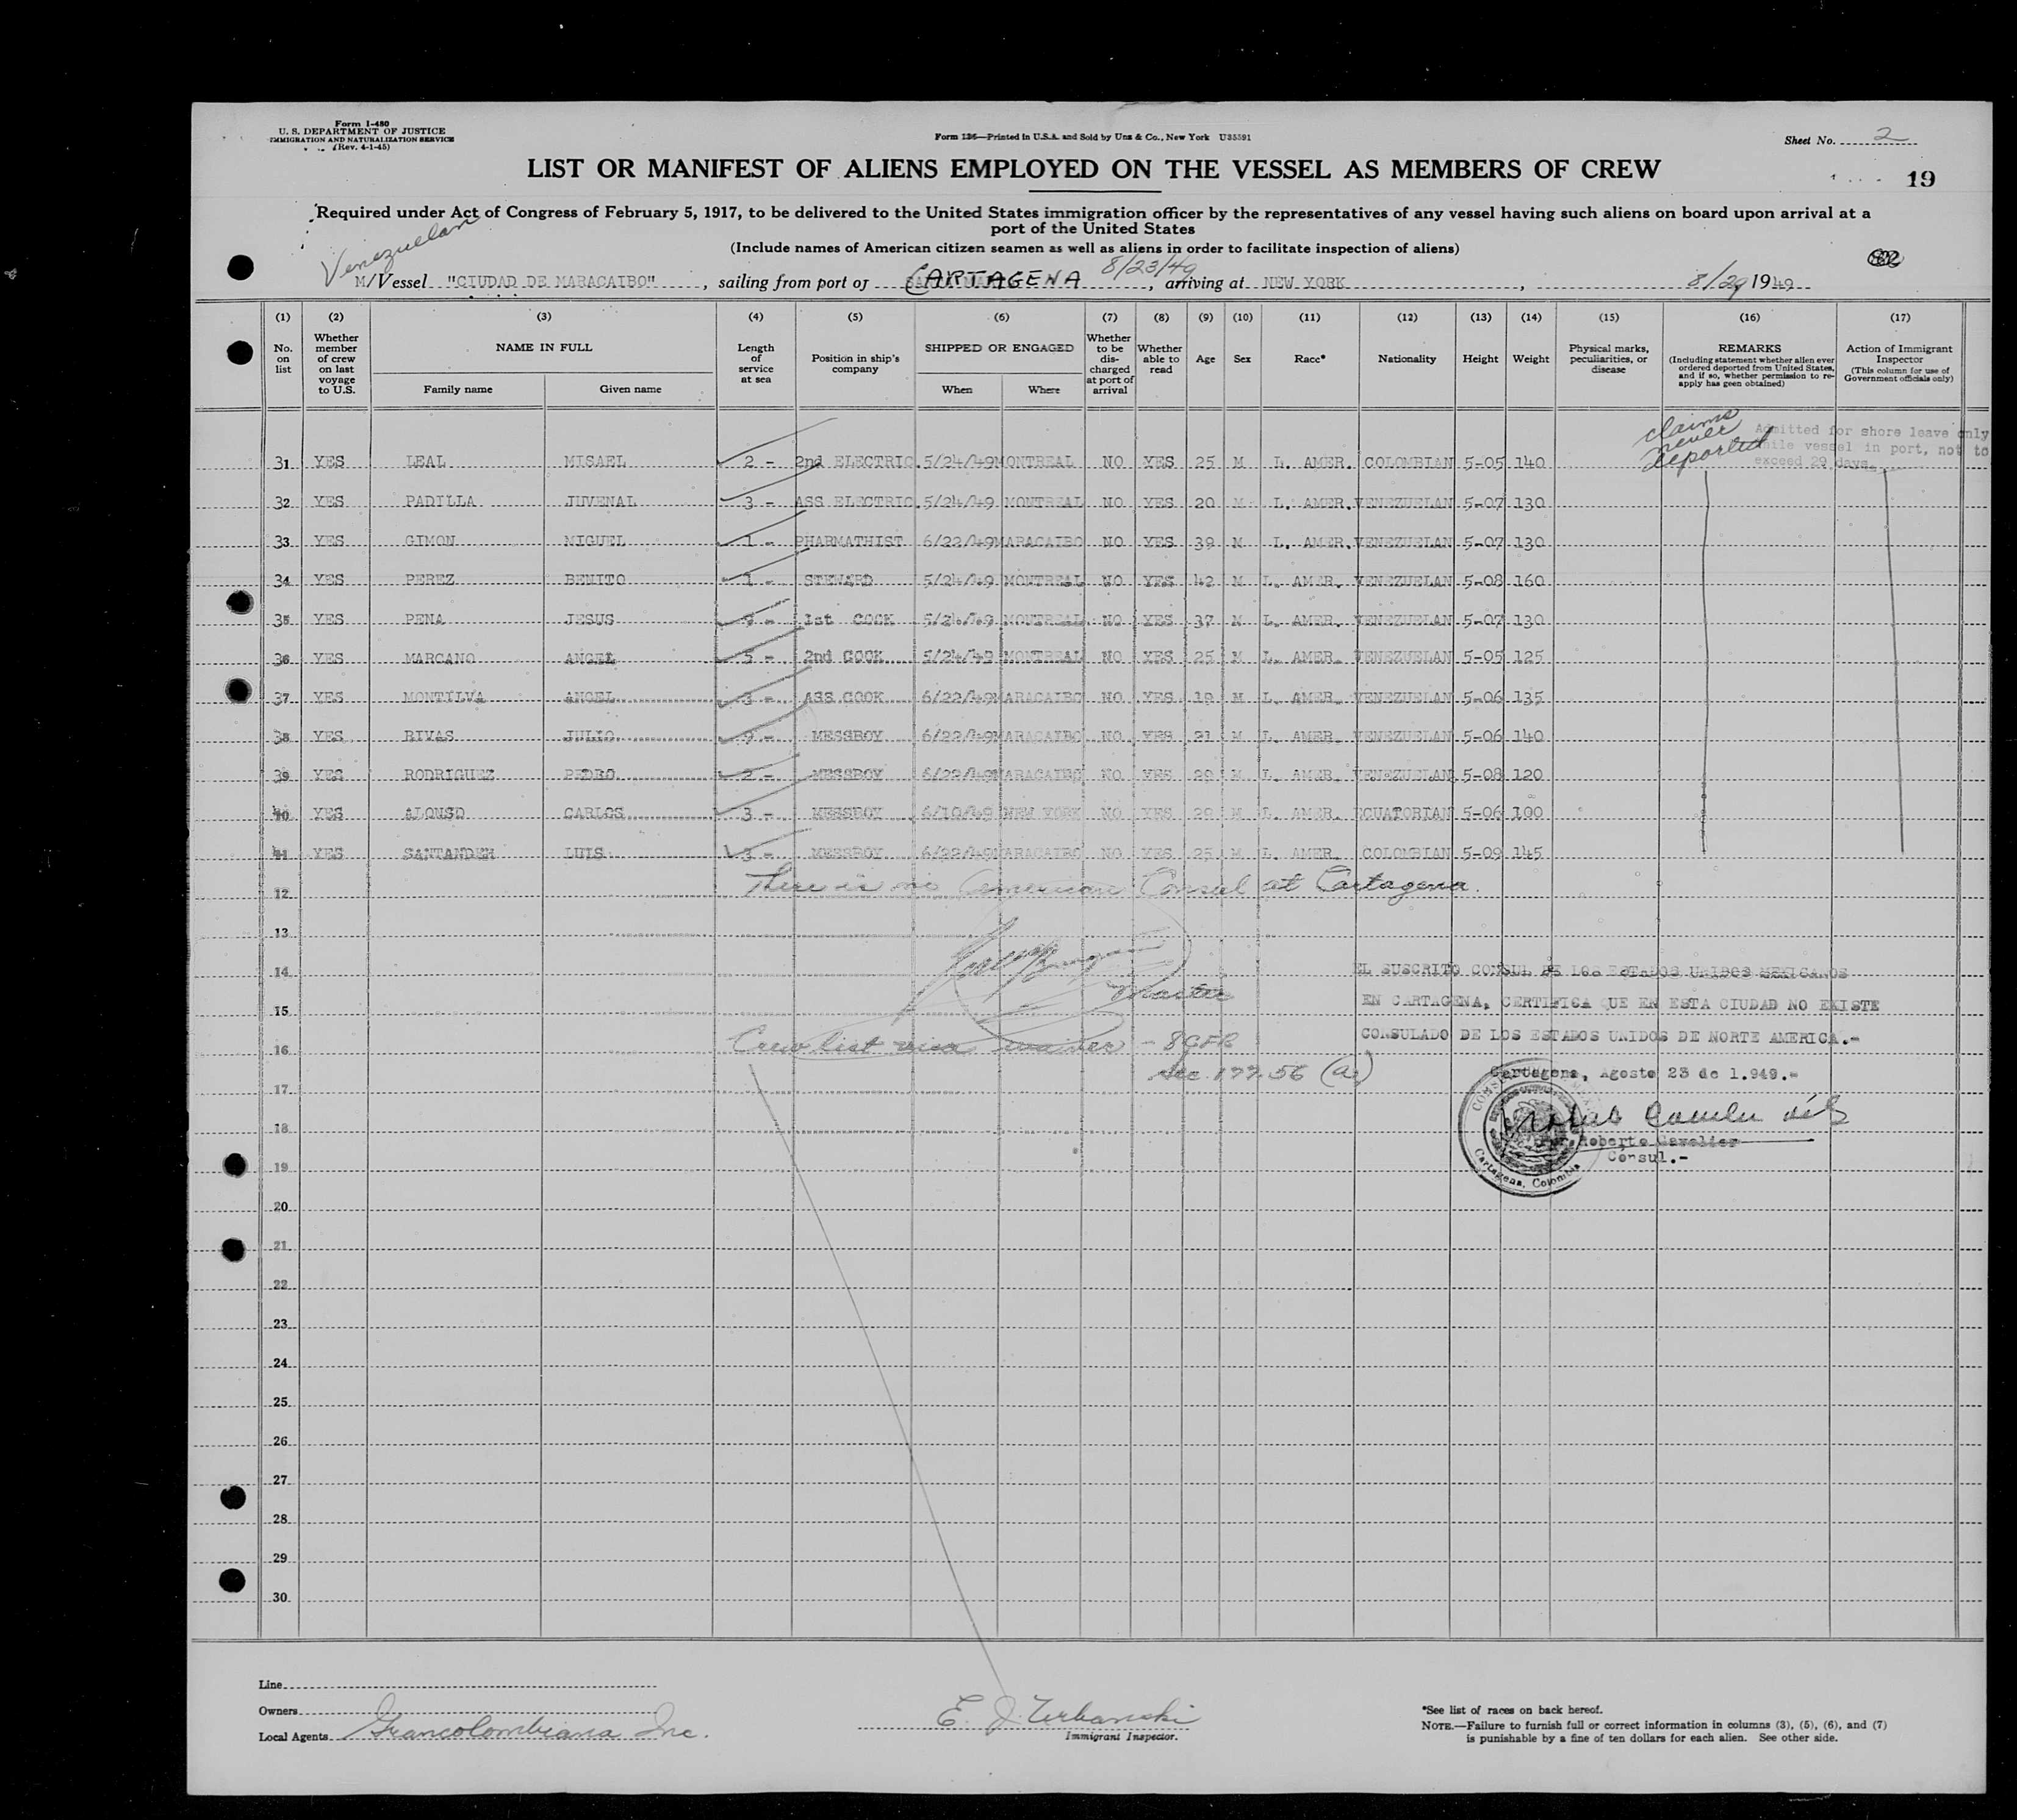 Form I-480
U. S. DEPARTMENT OF JUSTICE
IMMIGRATION AND NATURALIZATION SERVICE
(Rev. 4-1-45)
Form 136—Printed in U.S.A. and Sold by Unz & Co., New York U35591
Sheet No. 2
LIST OR MANIFEST OF ALIENS EMPLOYED ON THE VESSEL AS MEMBERS OF CREW
19
Required under Act of Congress of February 5, 1917, to be delivered to the United States immigration officer by the representatives of any vessel having such aliens on board upon arrival at a
port of the United States
(Include names of American citizen seamen as well as aliens in order to facilitate inspection of aliens)
Venezuelan
M/Vessel "CIUDAD DE MARACAIBO", sailing from port of CARTAGENA 8/23/49, arriving at NEW YORK, 8/29 1949
(1) (2) (3) (4) (5) (6) (7) (8) (9) (10) (11) (12) (13) (14) (15) (16) (17)
No. on list
Whether member of crew on last voyage to U.S.
NAME IN FULL
Family name
Given name
Length of service at sea
Position in ship's company
SHIPPED OR ENGAGED
When
Where
Whether to be discharged at port of arrival
Whether able to read
Age
Sex
Race*
Nationality
Height
Weight
Physical marks, peculiarities, or disease
REMARKS
(Including statement whether alien ever ordered deported from United States, and if so, whether permission to re-apply has geen obtained)
Action of Immigrant Inspector
(This column for use of Government officials only)
claims never deported
Admitted for shore leave only
while vessel in port, not to
exceed 29 days.
31 YES LEAL MISAEL 2 - 2nd ELECTRIC. 5/24/49 MONTREAL NO YES 25 M L. AMER. COLOMBIAN 5-05 140
32 YES PADILLA JUVENAL 3 - ASS ELECTRIC. 5/24/49 MONTREAL NO YES 20 M L. AMER. VENEZUELAN 5-07 130
33 YES GIMON MIGUEL 1 - PHARMATHIST 6/22/49 MARACAIBO NO YES 39 M L. AMER. VENEZUELAN 5-07 130
34 YES PEREZ BENITO 1 - STEWARD 5/24/49 MONTREAL NO YES 42 M L. AMER. VENEZUELAN 5-08 160
35 YES PENA JESUS - 1st COCK 5/24/49 MONTREAL NO YES 37 M L. AMER. VENEZUELAN 5-07 130
36 YES MARCANO ANGEL 5 - 2nd COOK 5/24/49 MONTREAL NO YES 25 M L. AMER. VENEZUELAN 5-05 125
37 YES MONTILVA ANGEL 3 - ASS COOK 6/22/49 MARACAIBO NO YES 19 M L. AMER. VENEZUELAN 5-06 135
38 YES RIVAS JULIO 9 - MESSBOY 6/22/49 MARACAIBO NO YES 21 M L. AMER. VENEZUELAN 5-06 140
39 YES RODRIGUEZ PEDRO 2 - MESSBOY 6/22/49 MARACAIBO NO YES 29 M L. AMER. VENEZUELAN 5-08 120
40 YES ALONSO CARLOS 3 - MESSBOY 6/10/49 NEW YORK NO YES 29 M L. AMER. ECUATORIAN 5-06 100
41 YES SANTANDER LUIS 3 - MESSBOY 6/22/49 MARACAIBO NO YES 25 M L. AMER. COLOMBIAN 5-09 145
There is no American Consul at Cartagena.
12
13
14
Master
EL SUSCRITO CONSUL DE LOS ESTADOS UNIDOS MEXICANOS
EN CARTAGENA, CERTIFICA QUE EN ESTA CIUDAD NO EXISTE
15
CONSULADO DE LOS ESTADOS UNIDOS DE NORTE AMERICA.-
16
Crew list visa waiver - 8 CFR
Sec. 177.56 (a)
Cartagena, Agosto 23 de 1.949.-
17
18
Roberto Cavelier
Consul.-
Cartagena, Colombia
19
20
21
22
23
24
25
26
27
28
29
30
Line
Owners
Local Agents Grancolombiana Inc.
E. J. Urbanski
Immigrant Inspector.
*See list of races on back hereof.
NOTE.—Failure to furnish full or correct information in columns (3), (5), (6), and (7)
is punishable by a fine of ten dollars for each alien. See other side.